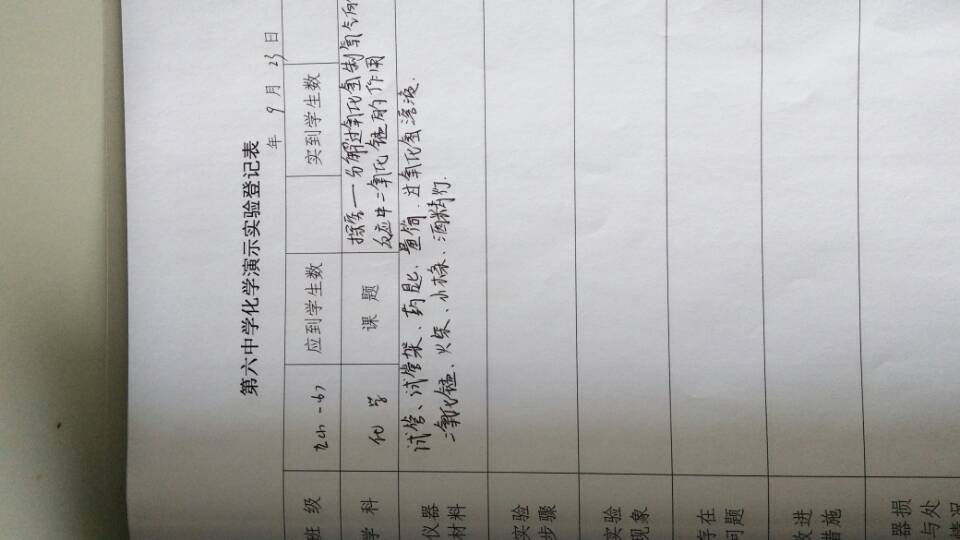 第六中学化学演示实验登记表
年 9 月 23 日
班 级 应到学生数 实到学生数
学 科 化 学 课 题 探究一分解过氧化氢制氧气的
反应中二氧化锰的作用
仪器 试管、试管架、药匙、量筒、过氧化氢溶液、
材料 二氧化锰、火柴、小木条、酒精灯.
实验
步骤
实验
现象
存在
问题
改进
措施
器损
与处
情况